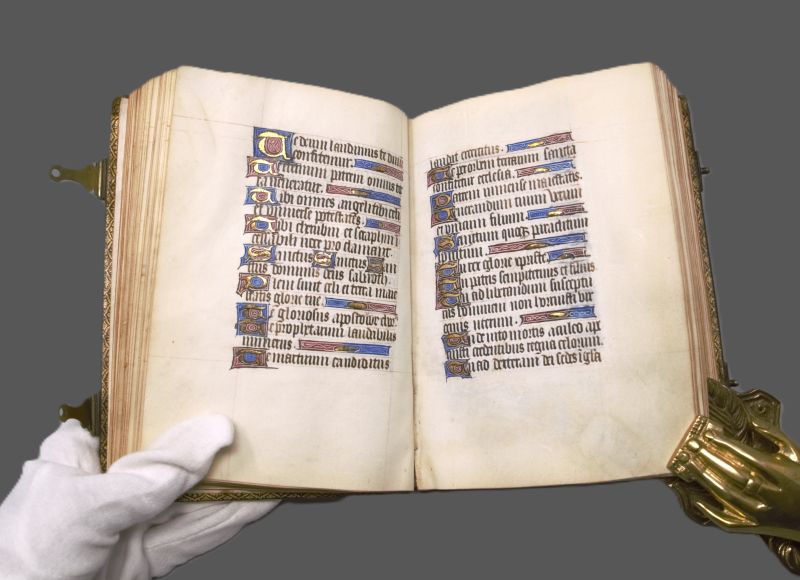 Te deum laudamus te domi
confitemur.
Te eternum patrem omnis te
ra veneratur.
Tibi omnes angeli tibi celi
et universe potestates.
Tibi cherubin et seraphin
incessabili voce proclamant.
Sanctus Sanctus San
ctus dominus deus sabaoth.
Pleni sunt celi et terra maie
statis glorie tue.
Te gloriosus apostolorum chor
Te prophetarum laudabilis
numerus.
Te martirum candidatus
laudat exercitus.
Te per orbem terrarum sancta
confitetur ecclesia.
Patrem immense maiestatis.
Venerandum tuum verum
et unicum filium.
Sanctum quoque paraclitum
spiritum.
Tu rex glorie christe.
Tu patris sempiternus es filius
Tu ad liberandum suscepturus
hominem non horruisti vir
ginis uterum.
Tu devicto mortis aculeo ape
ruisti credentibus regna celorum
Tu ad dexteram dei sedes in gloria